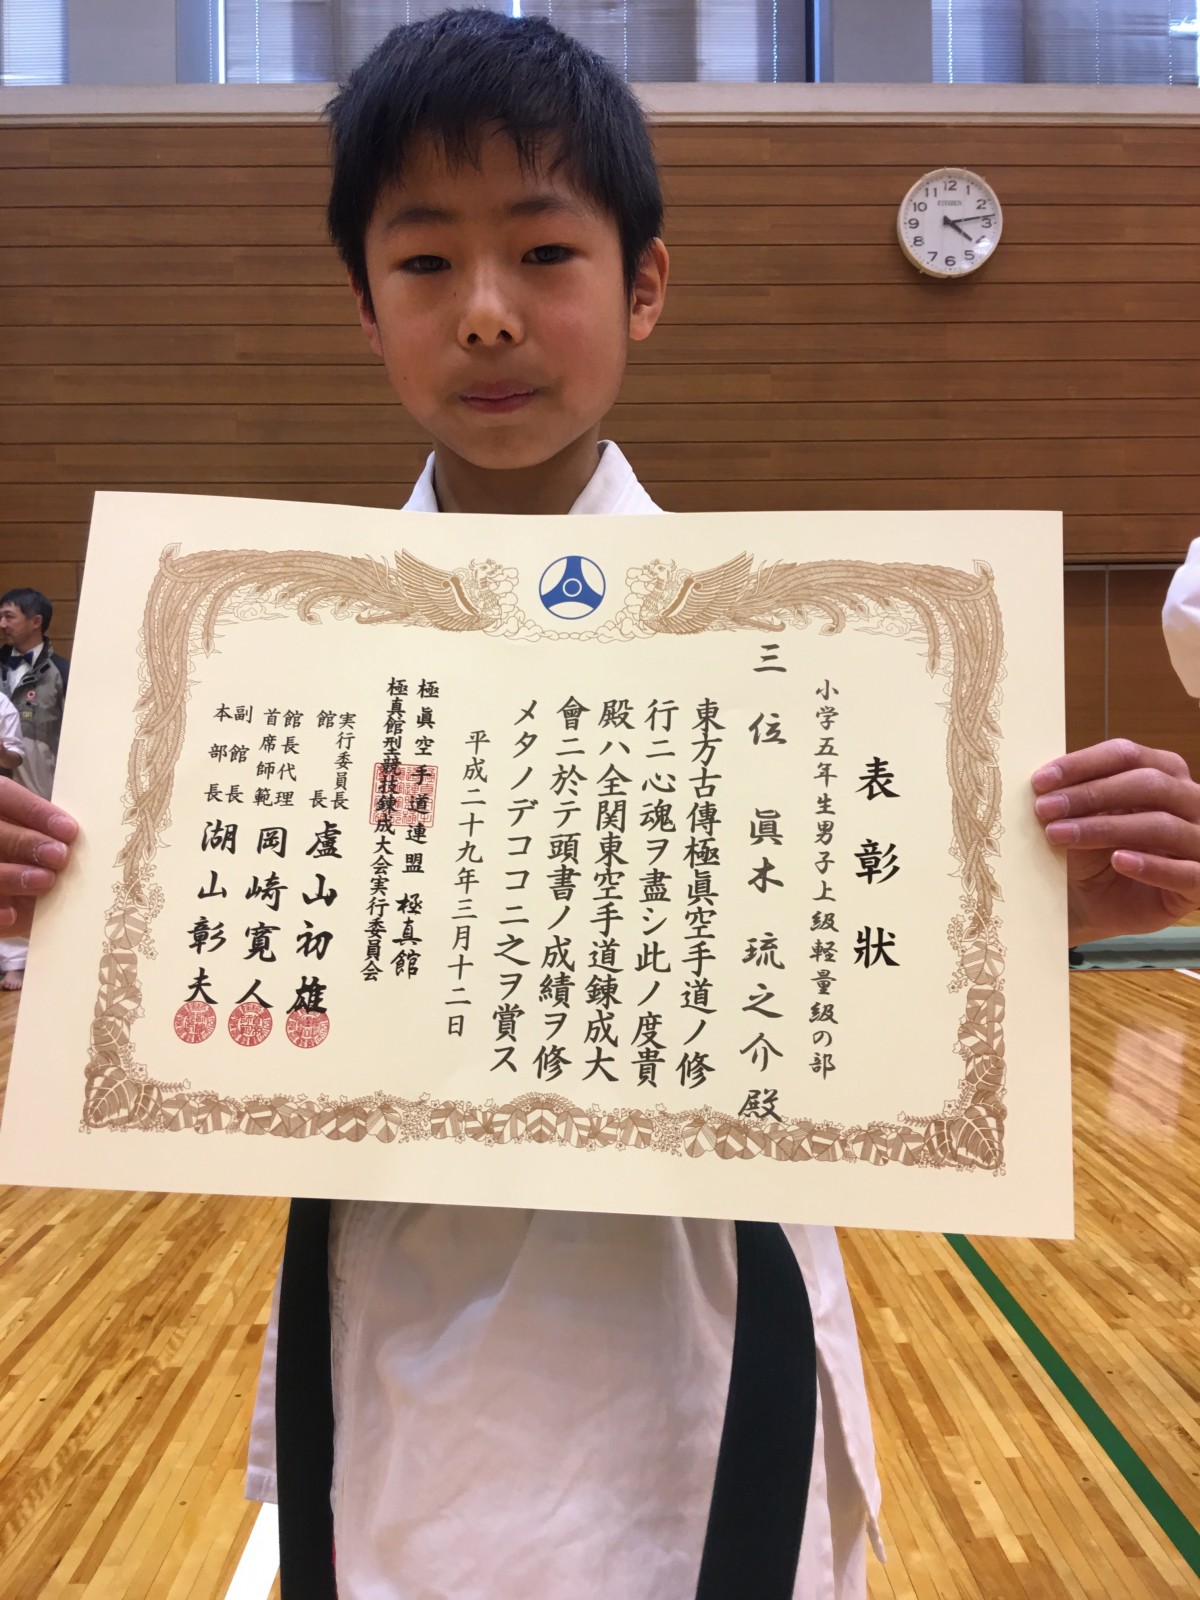 表彰状
小学五年生男子上級軽量級の部
三位 眞木 琉之介 殿
東方古傳極眞空手道ノ修
行ニ心魂ヲ盡シ此ノ度貴
殿ハ全関東空手道錬成大
會ニ於テ頭書ノ成績ヲ修
メタノデココニ之ヲ賞ス
平成二十九年三月十二日
極眞空手道連盟 極真館
極真館型競技錬成大会実行委員会
実行委員長
館長 盧山初雄
館長代理
首席師範 岡崎寛人
副館長
本部長 湖山彰夫
CITIZEN
12
1
2
3
4
5
6
7
8
9
10
11